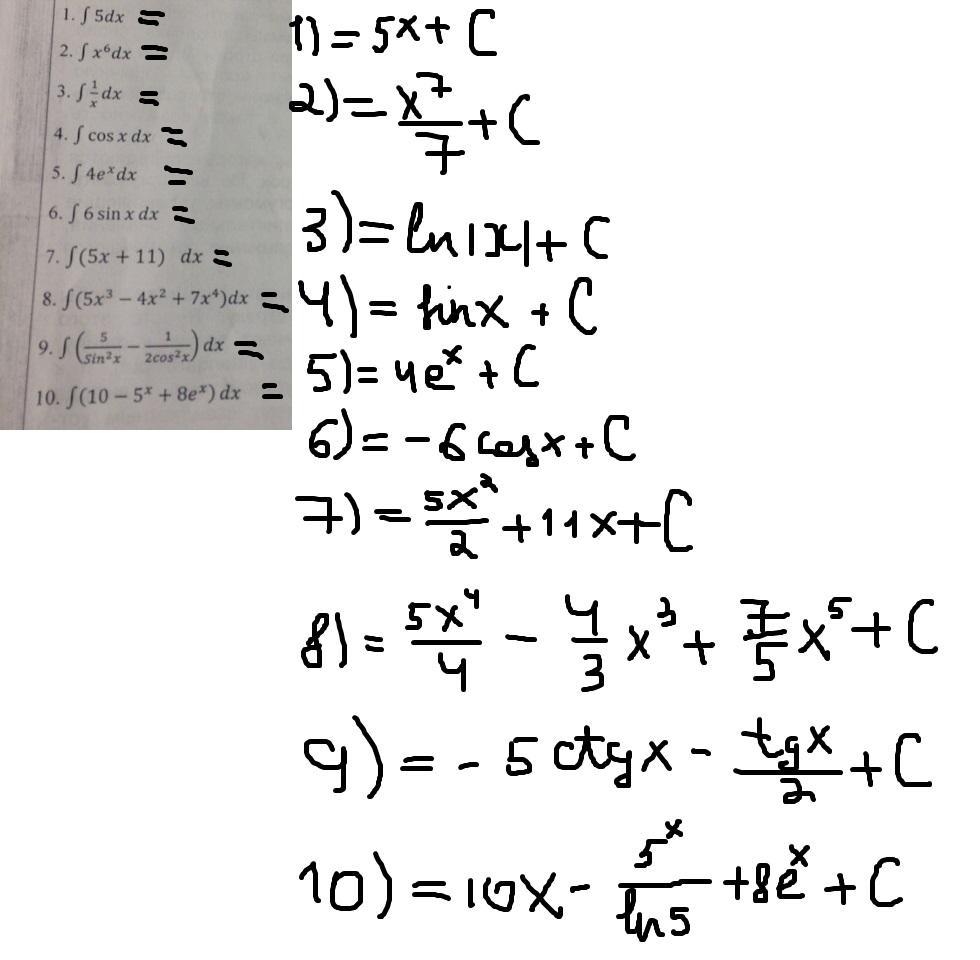 1. ∫ 5dx =
2. ∫ x⁶dx =
3. ∫ 1/x dx =
4. ∫ cos x dx =
5. ∫ 4eˣdx =
6. ∫ 6 sin x dx =
7. ∫(5x + 11) dx =
8. ∫(5x³ − 4x² + 7x⁴)dx =
9. ∫(5/Sin²x − 1/2cos²x) dx =
10. ∫(10 − 5ˣ + 8eˣ) dx =
1) = 5x + C
2) = x⁷/7 + C
3) = ln|x| + C
4) = sin x + C
5) = 4eˣ + C
6) = -6 cos x + C
7) = 5x²/2 + 11x + C
8) = 5x⁴/4 - 4/3 x³ + 7/5 x⁵ + C
9) = -5 ctg x - tg x/2 + C
10) = 10x - 5ˣ/ln5 + 8eˣ + C